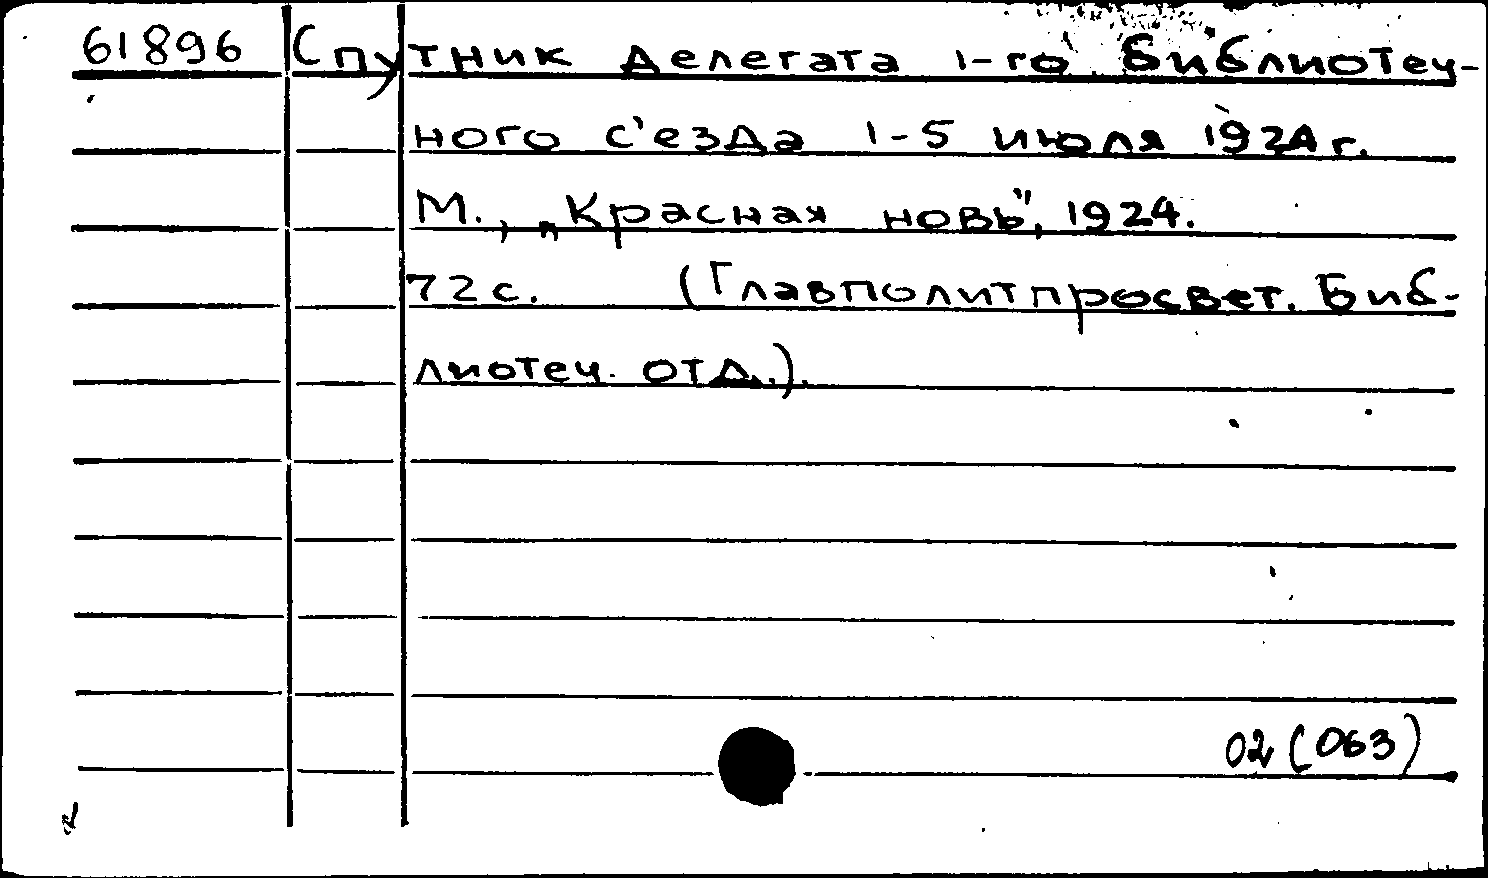 61896 Спутник делегата 1-го библиотеч-
ного с'езда 1-5 июля 1924 г.
М., „Красная новь", 1924.
72 с. (Главполитпросвет. Биб-
лиотеч. отд.).
02 (063)